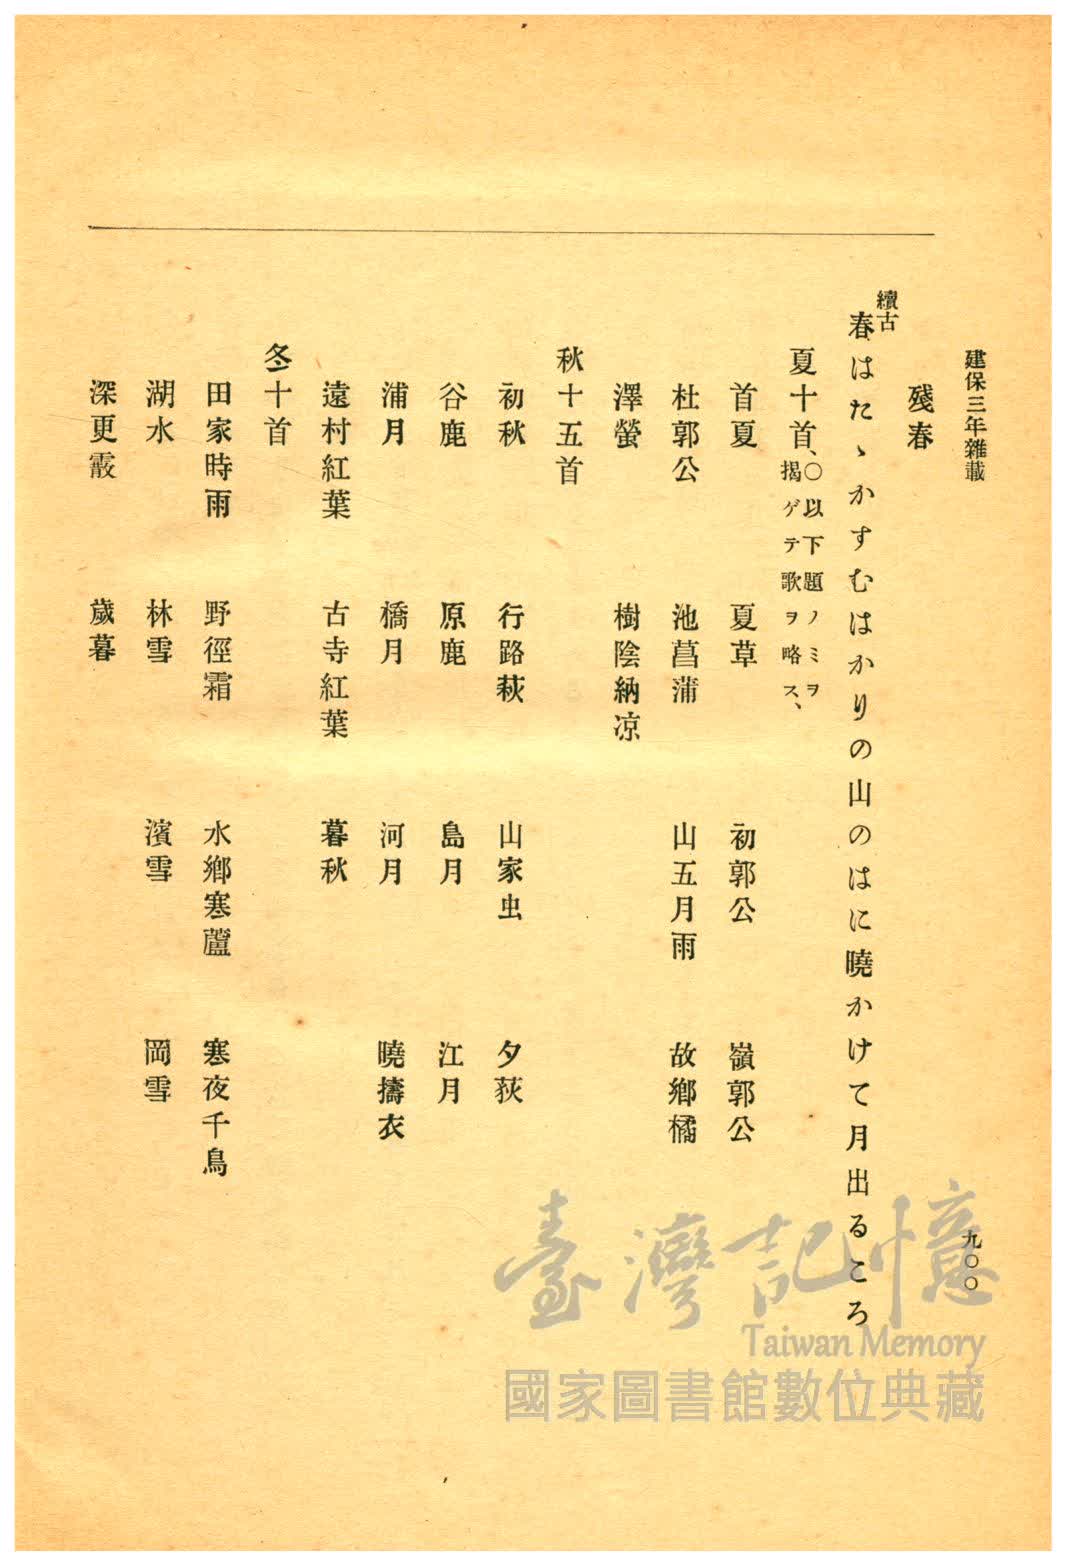 建保三年雜載
九〇〇
殘春
續古
春はたゝかすむはかりの山のはに曉かけて月出るころ
夏十首、〇以下題ノミヲ
揭ゲテ歌ヲ略ス、
首夏 夏草 初郭公 嶺郭公
杜郭公 池菖蒲 山五月雨 故鄕橘
澤螢 樹陰納凉
秋十五首
初秋 行路萩 山家虫 夕荻
谷鹿 原鹿 島月 江月
浦月 橋月 河月 曉擣衣
遠村紅葉 古寺紅葉 暮秋
冬十首
田家時雨 野徑霜 水鄕寒蘆 寒夜千鳥
湖水 林雪 濱雪 岡雪
深更霰 歲暮
臺灣記憶
Taiwan Memory
國家圖書館數位典藏